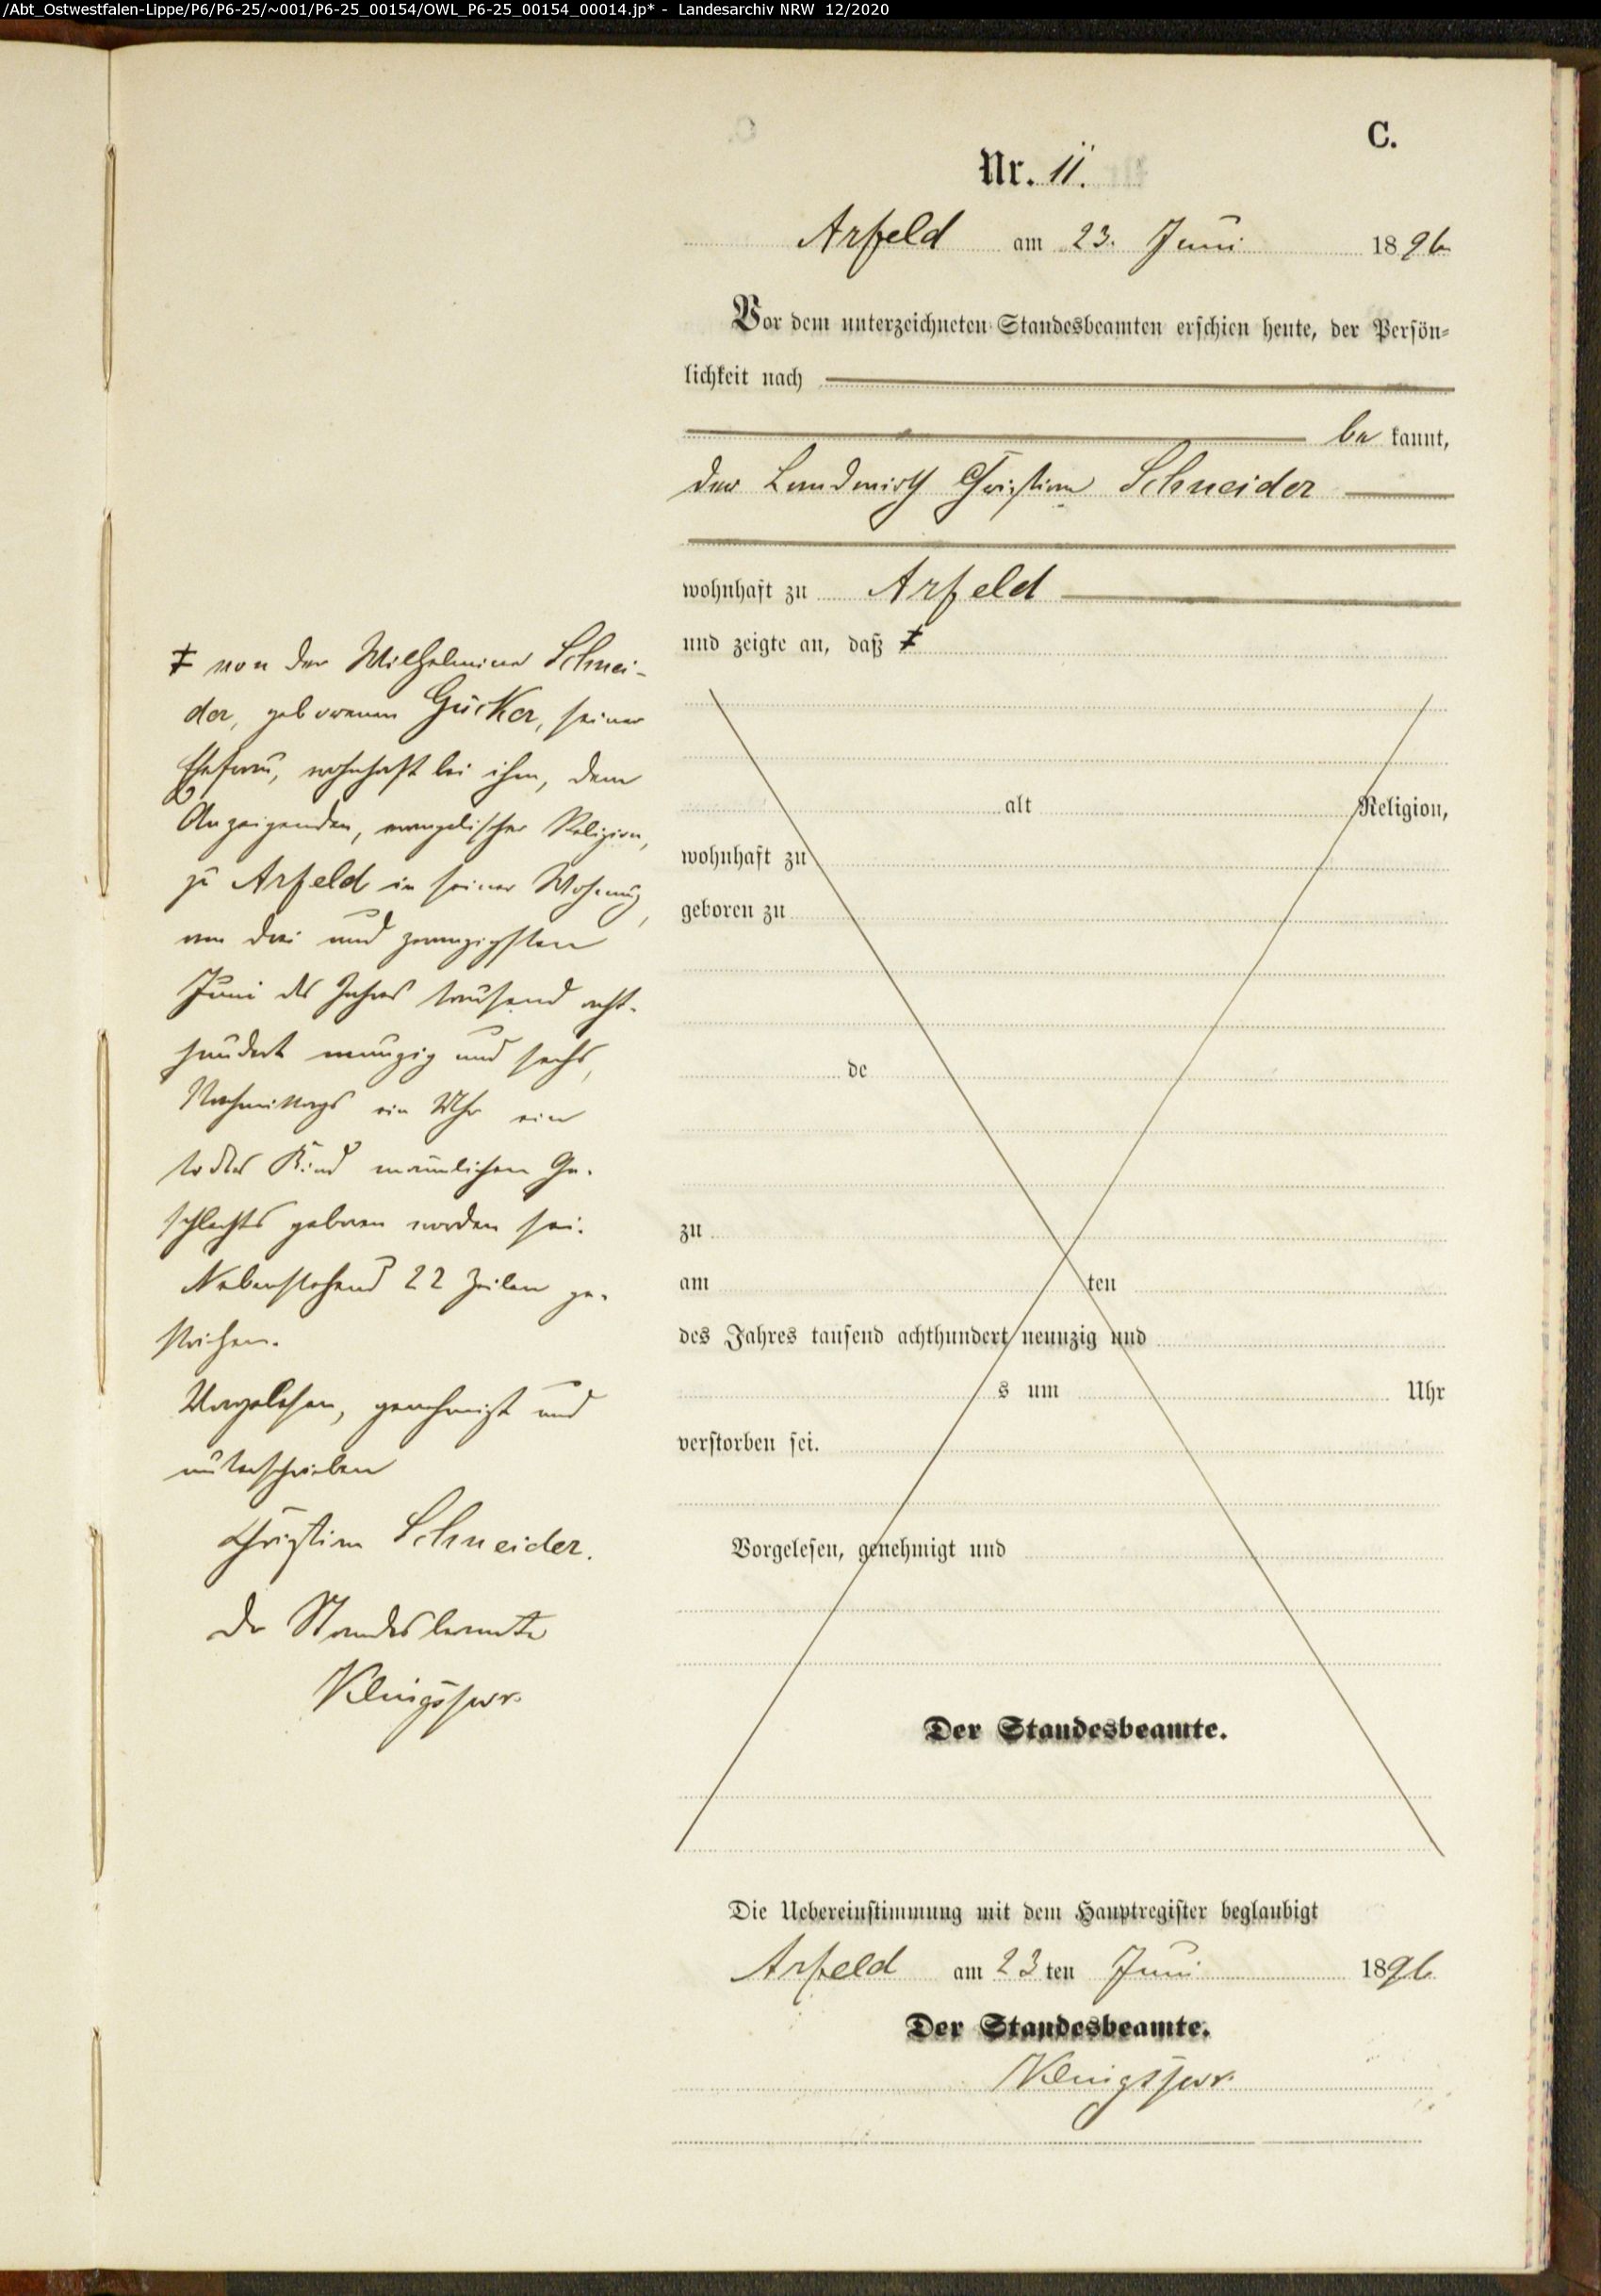 /Abt_Ostwestfalen-Lippe/P6/P6-25/~001/P6-25_00154/OWL_P6-25_00154_00014.jp* - Landesarchiv NRW 12/2020
C.
Nr. 11.
Arfeld am 23. Juni 1896
Vor dem unterzeichneten Standesbeamten erschien heute, der Persön-
lichkeit nach
be kannt,
der Landwirth Christian Schneider
wohnhaft zu Arfeld
und zeigte an, daß ‡
‡ von der Wilhelmine Schnei-
der, geborenen Gücker, seiner
Ehefrau, wohnhaft bei ihm, dem
Anzeigenden, evangelischer Religion,
zu Arfeld in seiner Wohnung,
am drei und zwanzigsten
Juni des Jahres tausend acht-
hundert neunzig und sechs,
Nachmittags ein Uhr ein
todtes Kind männlichen Ge-
schlechts geboren worden sei.
Nebenstehend 22 Zeilen ge-
strichen.
Vorgelesen, genehmigt und
unterschrieben
Christian Schneider.
Der Standesbeamte
alt Religion,
wohnhaft zu
geboren zu
de
zu
am ten
des Jahres tausend achthundert neunzig und
s um Uhr
verstorben sei.
Vorgelesen, genehmigt und
Der Standesbeamte.
Die Uebereinstimmung mit dem Hauptregister beglaubigt
Arfeld am 23 ten Juni 1896
Der Standesbeamte.